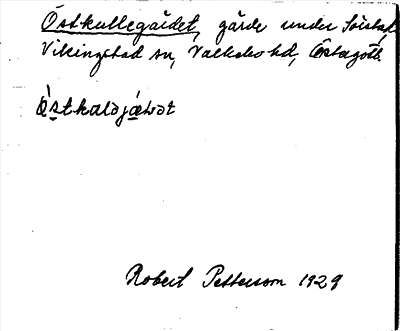 Östkullegärdet, gärde under Sörstad,
Vikingstad sn, Valkebo hd, Östergötl.
Östkaləjæləət
Robert Petterson 1929